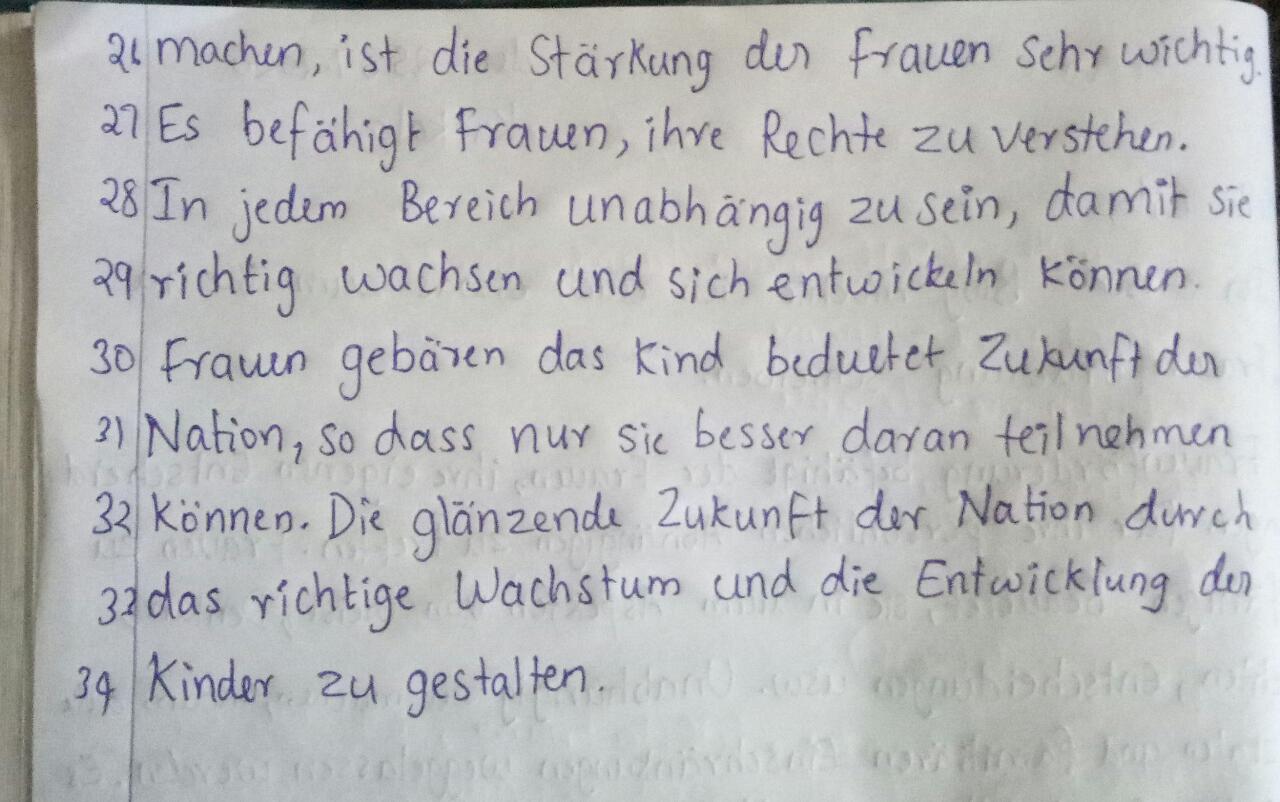 26 machen, ist die Stärkung der Frauen sehr wichtig.
27 Es befähigt Frauen, ihre Rechte zu verstehen.
28 In jedem Bereich unabhängig zu sein, damit sie
29 richtig wachsen und sich entwickeln können.
30 Frauen gebären das Kind beduetet Zukunft der
31 Nation, so dass nur sie besser daran teilnehmen
32 können. Die glänzende Zukunft der Nation durch
33 das richtige Wachstum und die Entwicklung der
34 Kinder zu gestalten.